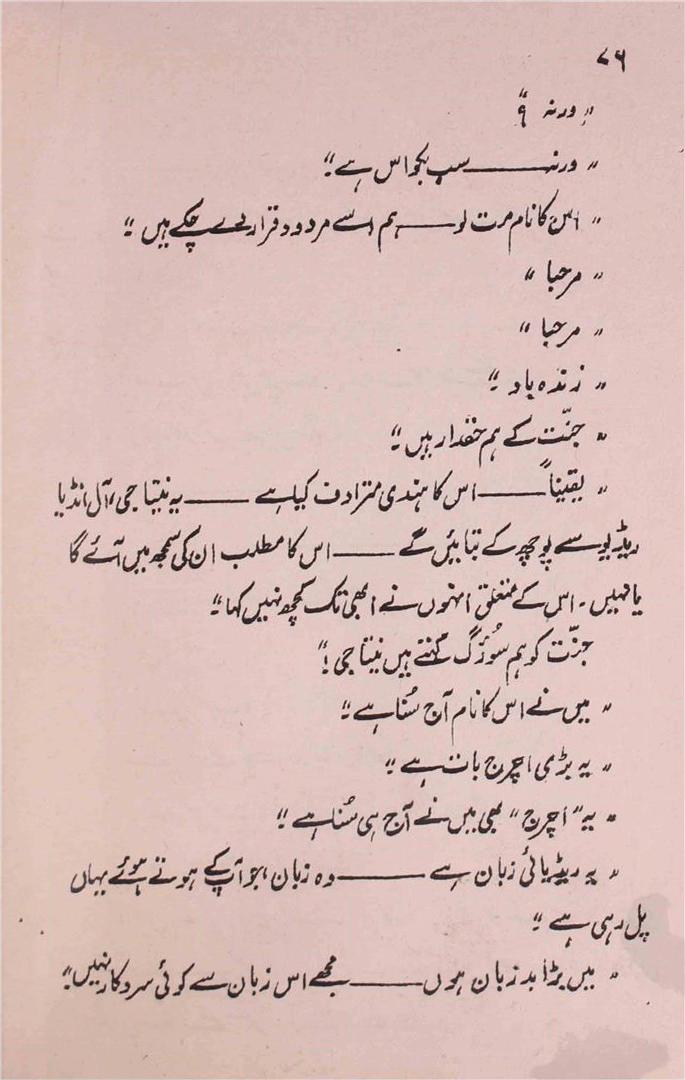 ۷۶
"ورنہ ؟"
"ورنہ ـــــــ سب بکواس ہے۔"
"اس کا نام مت لو ـــــــ ہم اسے مردود قرار دے چکے ہیں۔"
"مرحبا"
"مرحبا"
"زندہ باد۔"
"جنّت کے ہم حقدار ہیں۔"
"یقیناً ـــــــ اس کا ہندی مترادف کیا ہے ـــــــ یہ نیتا جی، آل انڈیا
ریڈیو سے پوچھ کے بتائیں گے ـــــــ اس کا مطلب ان کی سمجھ میں آئے گا
یا نہیں۔ اس کے متعلق انہوں نے ابھی تک کچھ نہیں کہا۔"
جنّت کو ہم سُوَرگ کہتے ہیں نیتا جی!"
"میں نے اس کا نام آج سُنا ہے۔"
"یہ بڑی اچرج بات ہے۔"
"یہ "اچرج" بھی میں نے آج ہی سُنا ہے۔"
"یہ ریڈیائی زبان ہے ـــــــ وہ زبان، جو آپ کے ہوتے ہوئے یہاں
پل رہی ہے۔"
"میں بڑا بد زبان ہوں ـــــــ مجھے اس زبان سے کوئی سروکار نہیں۔"